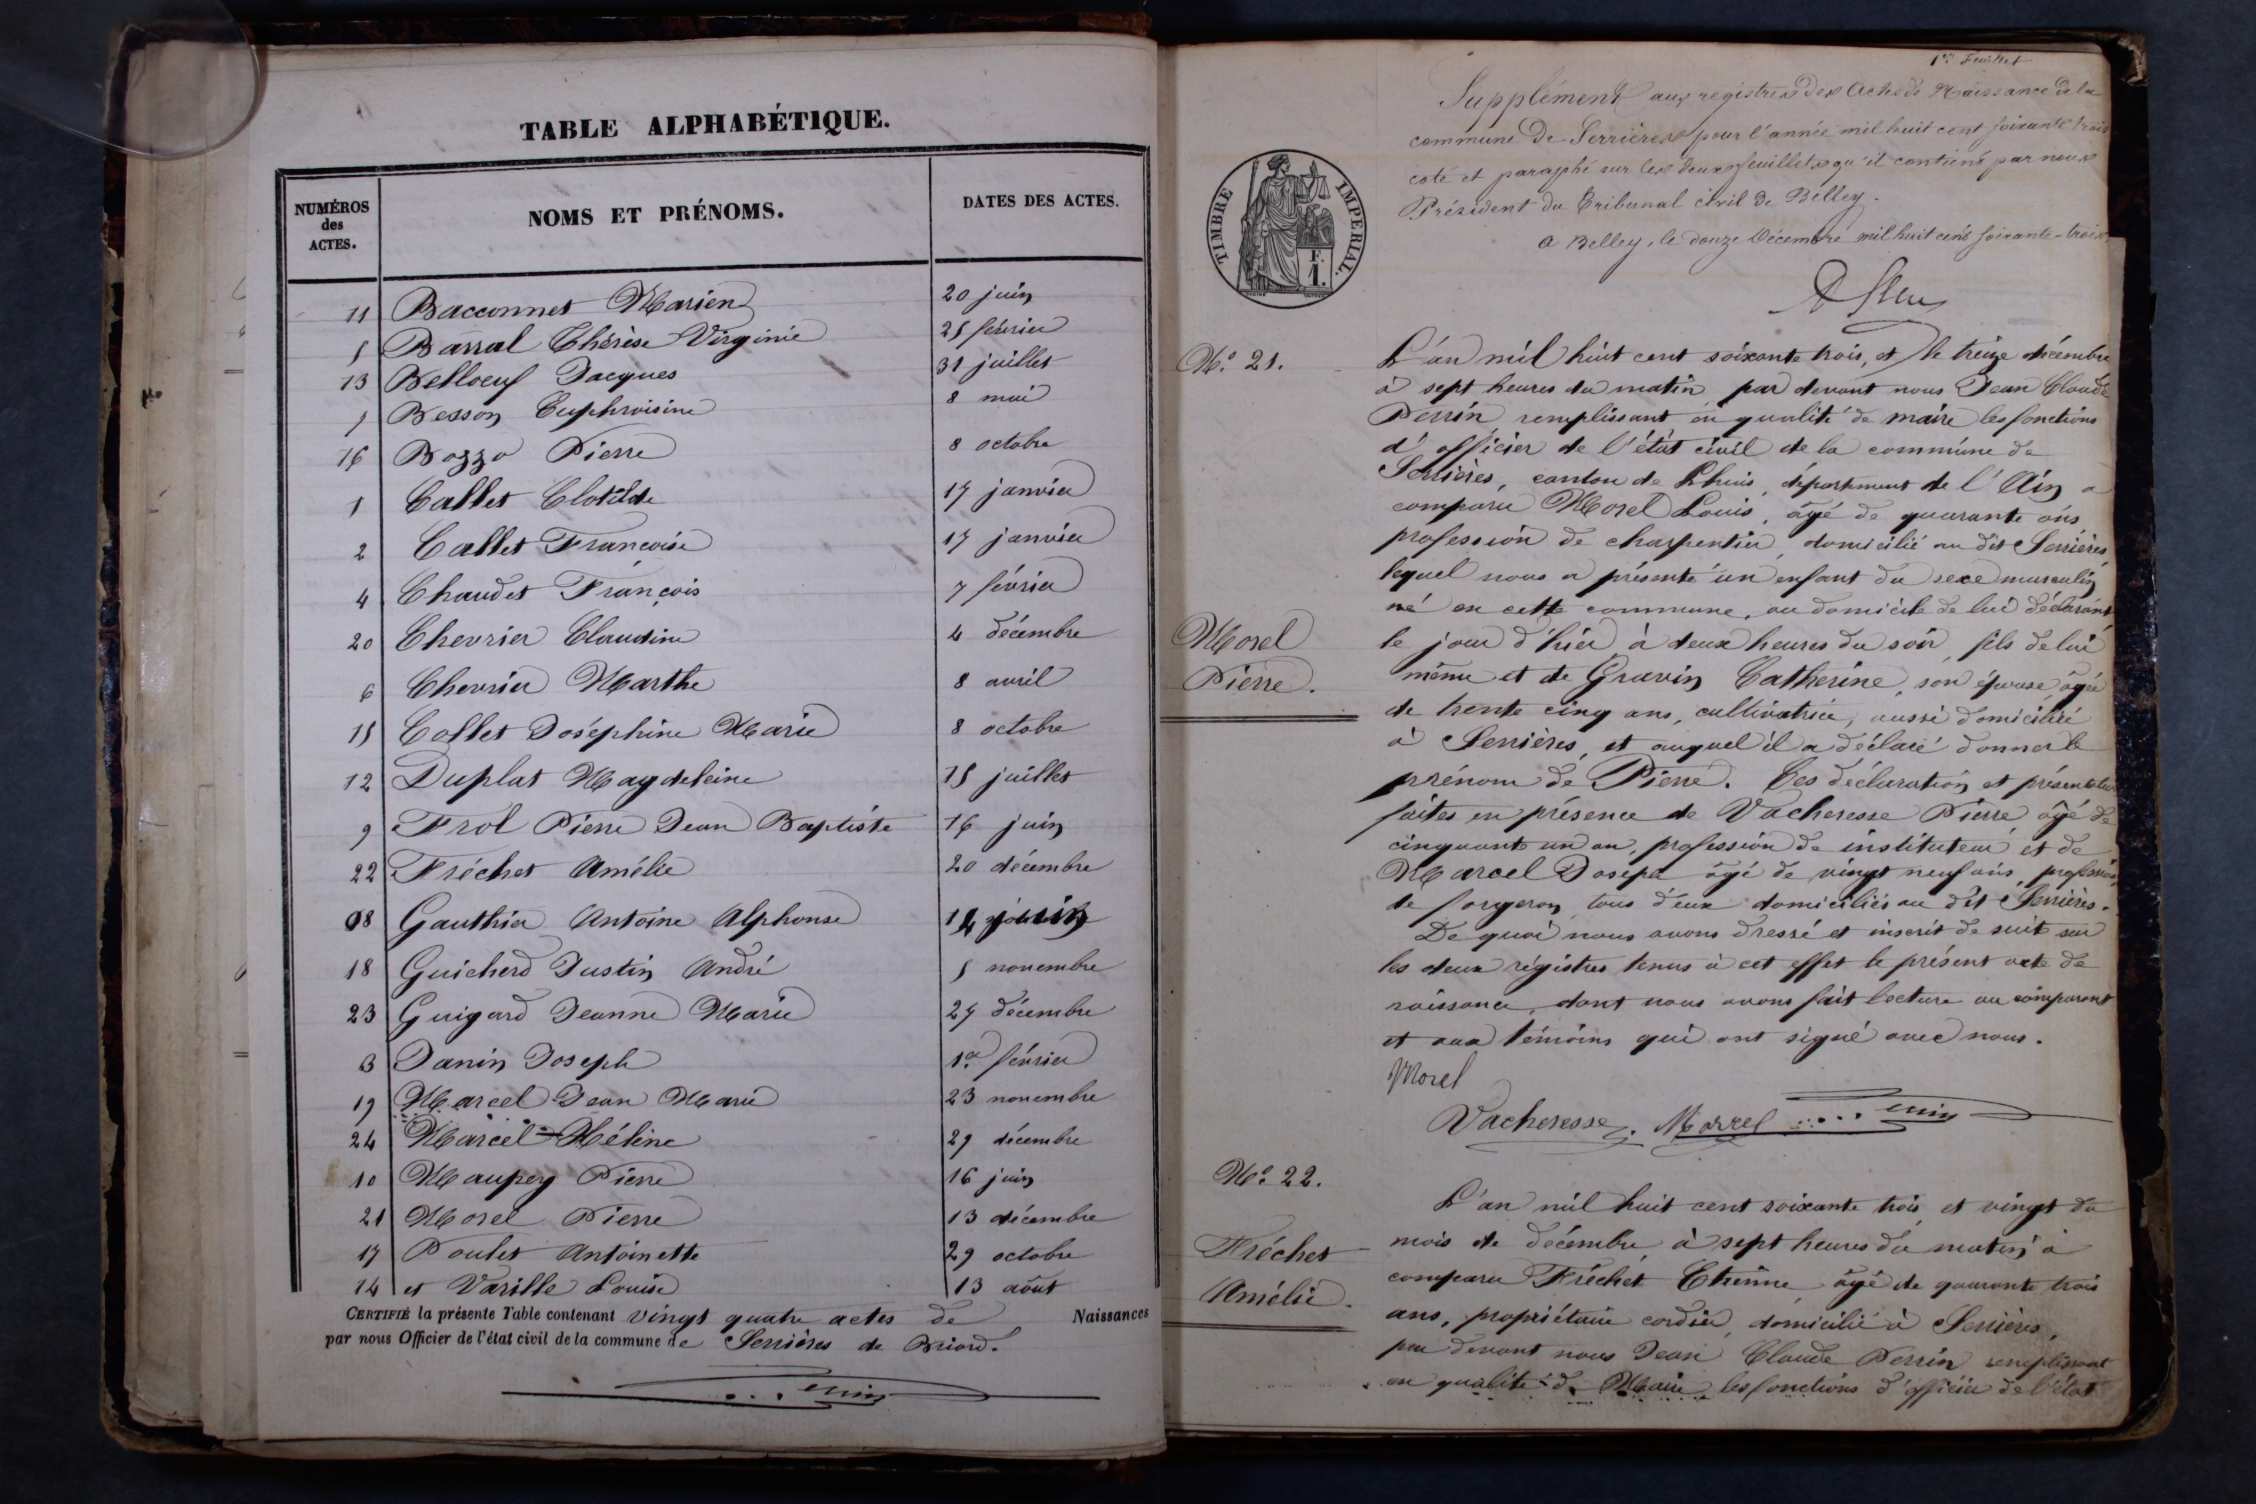 TABLE ALPHABÉTIQUE.
NUMÉROS des ACTES. NOMS ET PRÉNOMS. DATES DES ACTES.
11 Bacconnet Marien 20 juin
5 Barral Thérèse Virginie 25 février
13 Belloeuf Jacques 31 juillet
7 Besson Euphroisine 8 mai
16 Bozzo Pierre 8 octobre
1 Callet Clotilde 17 janvier
2 Callet Françoise 17 janvier
4 Chaudet François 7 février
20 Chevrier Claudine 4 décembre
6 Chevrier Marthe 8 avril
15 Collet Joséphine Marie 8 octobre
12 Duplat Magdeleine 15 juillet
9 Frol Pierre Jean Baptiste 16 juin
22 Fréchet Amélie 20 décembre
8 Gauthier Antoine Alphonse 14 juin
18 Guicherd Justin André 5 novembre
23 Guigard Jeanne Marie 27 décembre
3 Janin Joseph 1er février
19 Marcel Jean Marie 23 novembre
24 Marcel Hélène 29 décembre
10 Maupey Pierre 16 juin
21 Morel Pierre 13 décembre
17 Poulet Antoinette 29 octobre
14 et Varille Louise 13 août
CERTIFIÉ la présente Table contenant vingt quatre actes de Naissances
par nous Officier de l'état civil de la commune de Serrières de Briord.
1er feuillet
Supplément aux registres des Actes de Naissance de la
commune de Serrières pour l'année mil huit cent soixante trois
coté et paraphé sur les deux feuillets qu'il contient par nous
Président du Tribunal civil de Belley.
A Belley, le douze Décembre mil huit cent soixante-trois
TIMBRE IMPERIAL.
F. 1.
No. 21.
L'an mil huit cent soixante trois, et le treize décembre
à sept heures du matin par devant nous Jean Claude
Perrin remplissant en qualité de maire les fonctions
d'officier de l'état civil de la commune de
Serrières, canton de Lhuis, département de l'Ain a
comparu Morel Louis, âgé de quarante ans
profession de charpentier, domicilié au dit Serrières
lequel nous a présenté un enfant du sexe masculin
né en cette commune, au domicile de lui déclarant
Morel
Pierre.
le jour d'hier à deux heures du soir, fils de lui
même et de Gravin Catherine, son épouse âgée
de trente cinq ans, cultivatrice, aussi domiciliée
à Serrières, et auquel il a déclaré donner le
prénom de Pierre. Ces déclaration et présentation
faites en présence de Vacheresse Pierre âgé de
cinquante un an, profession de instituteur et de
Marcel Joseph âgé de vingt neuf ans, profession
de forgeron, tous deux domiciliés au dit Serrières.
De quoi nous avons dressé et inscrit de suite sur
les deux régistres tenus à cet effet le présent acte de
naissance, dont nous avons fait lecture au comparant
et aux témoins qui ont signé avec nous.
Morel
Vacheresse. Marcel
No. 22.
Fréchet
Amélie.
L'an mil huit cent soixante trois et vingt du
mois de décembre à sept heures du matin a
comparu Fréchet Etienne âgé de quarante trois
ans, propriétaire cordier, domicilié à Serrières,
par devant nous Jean Claude Perrin remplissant
en qualité de Maire les fonctions d'officier de l'état